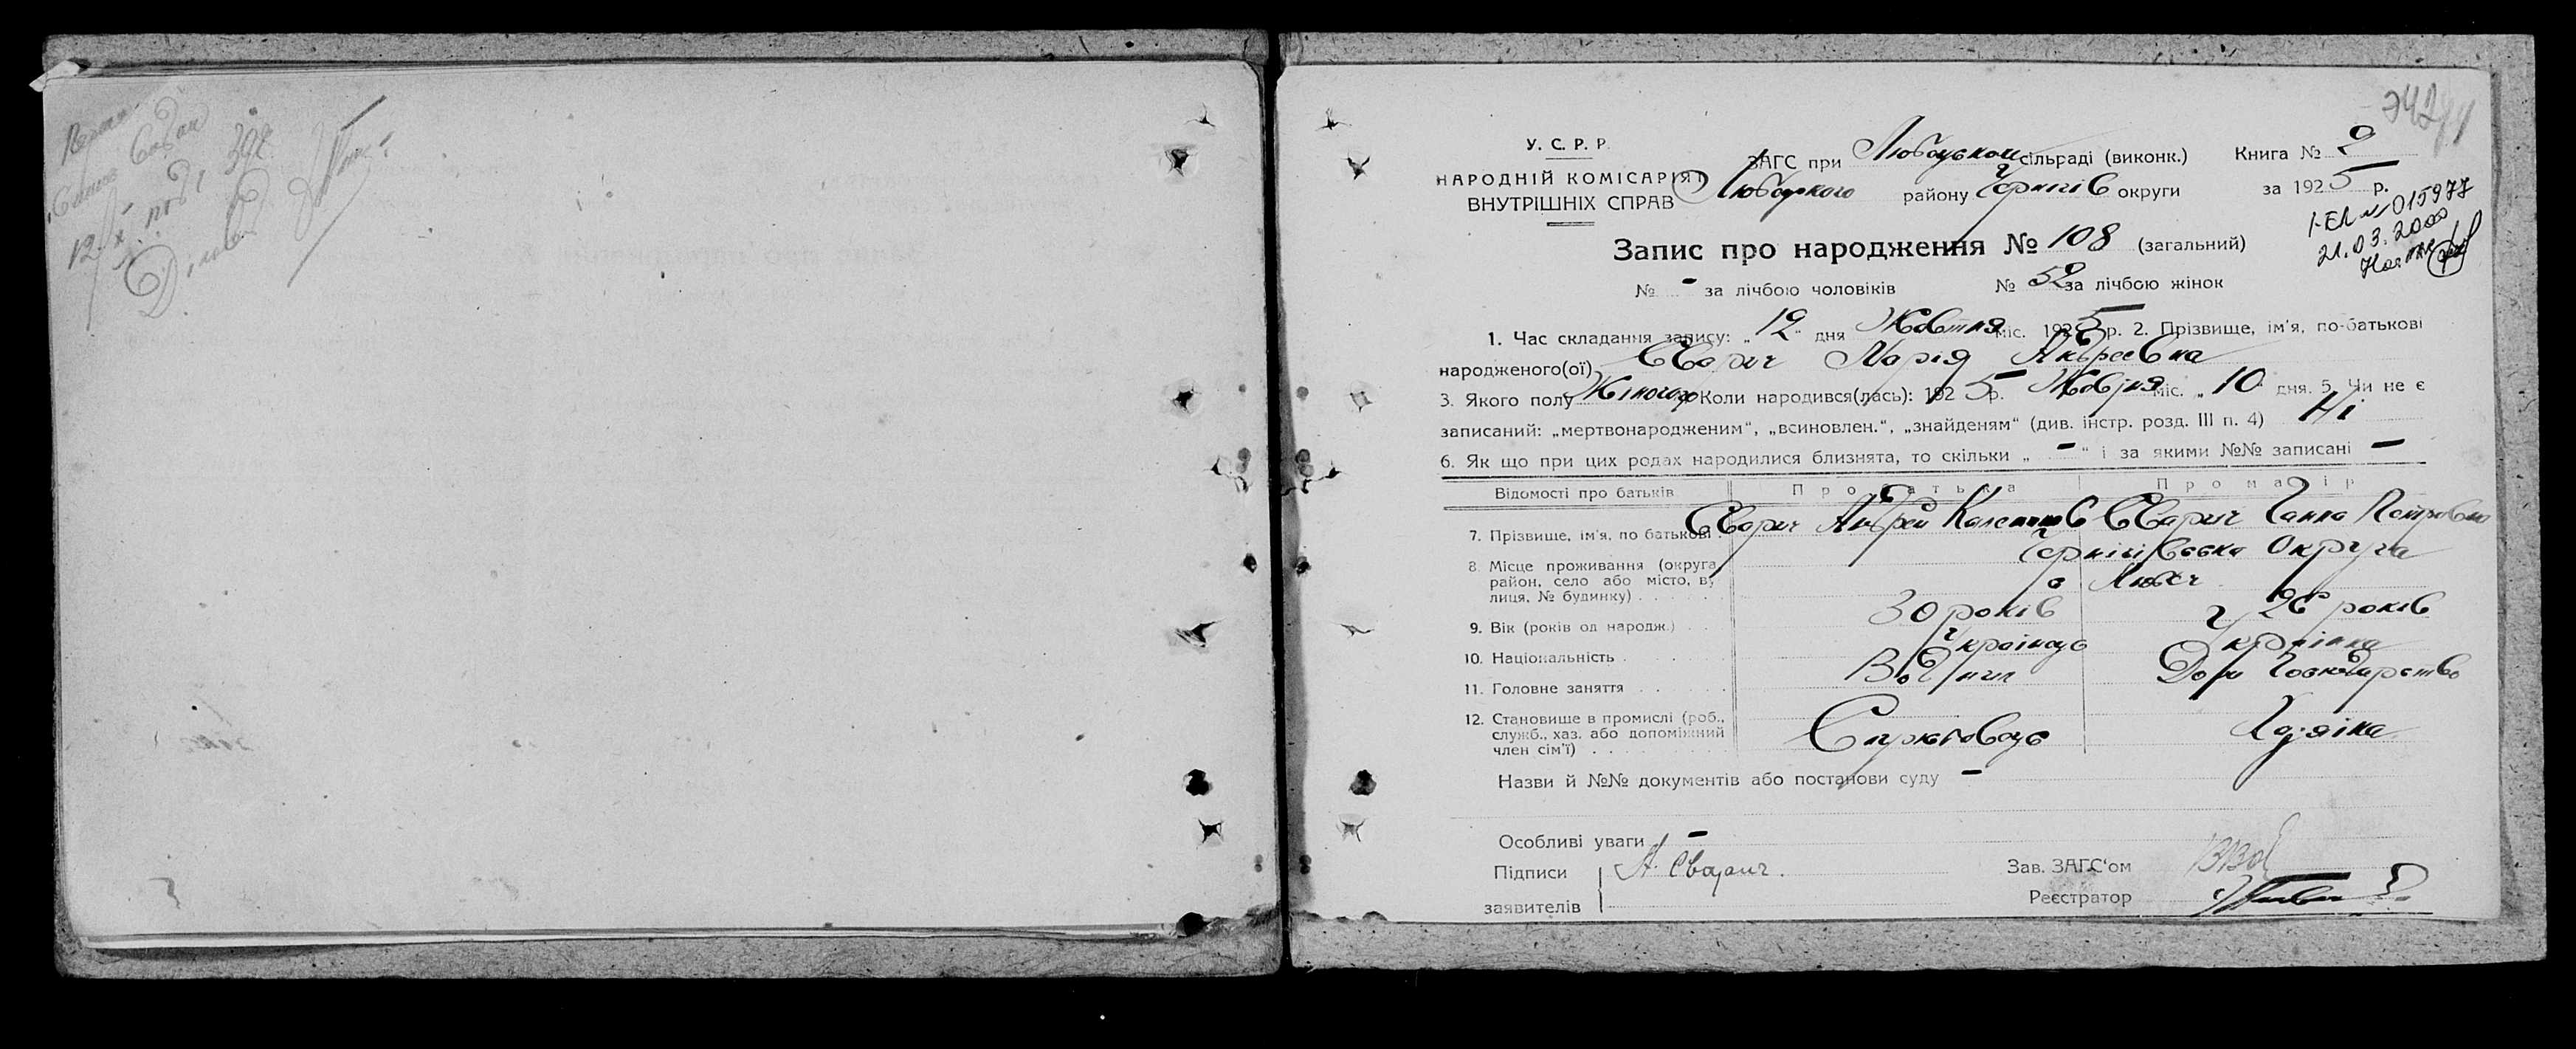 12/X
У. С. Р. Р.
НАРОДНІЙ КОМІСАРІЯТ
ВНУТРІШНІХ СПРАВ
ЗАГС при Любецьком сільраді (виконк.) Книга № 2
Любецького району Чернігів округи за 1925 р.
015977
21.03.2000
Запис про народження № 108 (загальний)
№ - за лічбою чоловіків № 52 за лічбою жінок
1. Час складання запису: „12“ дня Жовтня міс. 1925 р. 2. Прізвище, ім'я, по-батькові
народженого(ої) Сварич Марія Андреєвна
3. Якого полу Жіночого Коли народився(лась): 1925 р. Жовтня міс. „10“ дня. 5. Чи не є
записаний: „мертвонародженим“, „всиновлен.“, „знайденям“ (див. інстр. розд. III п. 4) Ні
6. Як що при цих родах народилися близнята, то скільки „ - “ і за якими №№ записані -
Відомості про батьків Про батька Про матір
7. Прізвище, ім'я, по батькові Сварич Андрей Сварич Ганна Петровна
8. Місце проживання (округа, район, село або місто, вулиця, № будинку) Чернігівська Округа
м Любеч
9. Вік (років од народж.) 30 років 26 років
10. Національність Українець Українка
11. Головне заняття Дом Господарство
12. Становище в промислі (роб., служб., хаз. або допоміжний член сім'ї) Хазяїка
Назви й №№ документів або постанови суду -
Особливі уваги -
Підписи А. Сварич. Зав. ЗАГС'ом
заявителів Реєстратор